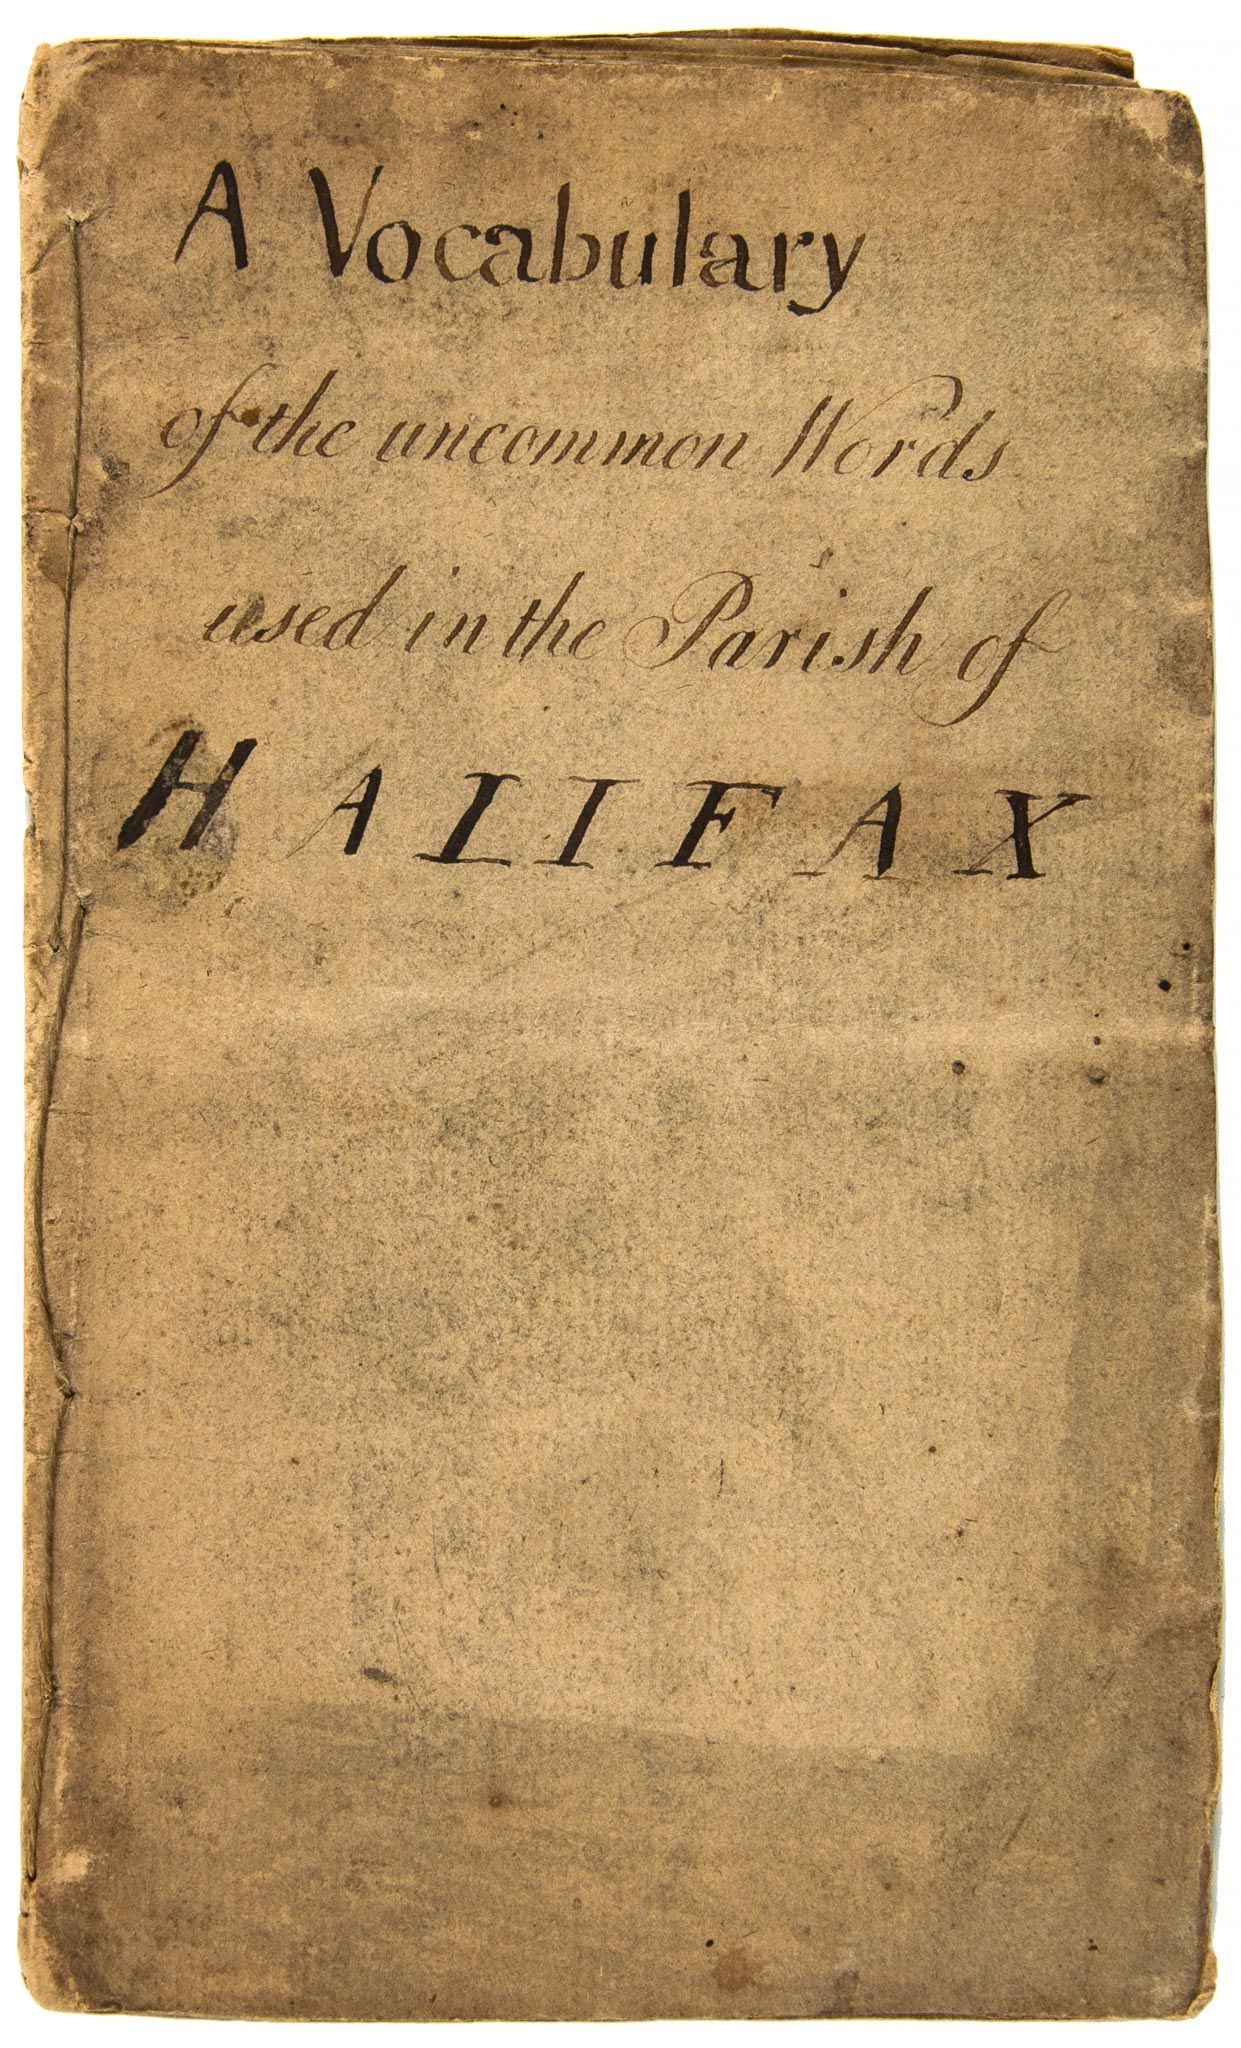 A Vocabulary
of the uncommon Words
used in the Parish of
HALIFAX